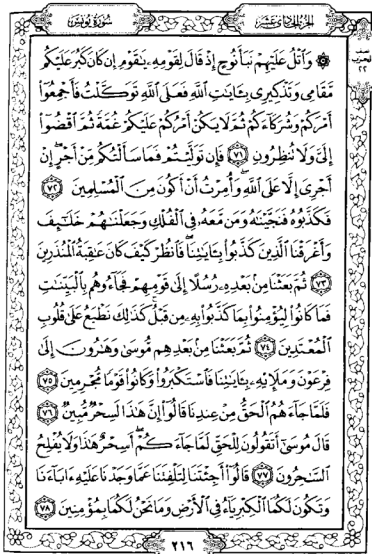 سورة يونس
الجزء الحادي عشر
نصف الحزب ٢٢
۞ وَٱتْلُ عَلَيْهِمْ نَبَأَ نُوحٍ إِذْ قَالَ لِقَوْمِهِۦ يَـٰقَوْمِ إِن كَانَ كَبُرَ عَلَيْكُم
مَّقَامِى وَتَذْكِيرِى بِـَٔايَـٰتِ ٱللَّهِ فَعَلَى ٱللَّهِ تَوَكَّلْتُ فَأَجْمِعُوٓا۟
أَمْرَكُمْ وَشُرَكَآءَكُمْ ثُمَّ لَا يَكُنْ أَمْرُكُمْ عَلَيْكُمْ غُمَّةً ثُمَّ ٱقْضُوٓا۟
إِلَىَّ وَلَا تُنظِرُونِ ٧١ فَإِن تَوَلَّيْتُمْ فَمَا سَأَلْتُكُم مِّنْ أَجْرٍ إِنْ
أَجْرِىَ إِلَّا عَلَى ٱللَّهِ وَأُمِرْتُ أَنْ أَكُونَ مِنَ ٱلْمُسْلِمِينَ ٧٢
فَكَذَّبُوهُ فَنَجَّيْنَـٰهُ وَمَن مَّعَهُۥ فِى ٱلْفُلْكِ وَجَعَلْنَـٰهُمْ خَلَـٰٓئِفَ
وَأَغْرَقْنَا ٱلَّذِينَ كَذَّبُوا۟ بِـَٔايَـٰتِنَا فَٱنظُرْ كَيْفَ كَانَ عَـٰقِبَةُ ٱلْمُنذَرِينَ
٧٣ ثُمَّ بَعَثْنَا مِنۢ بَعْدِهِۦ رُسُلًا إِلَىٰ قَوْمِهِمْ فَجَآءُوهُم بِٱلْبَيِّنَـٰتِ
فَمَا كَانُوا۟ لِيُؤْمِنُوا۟ بِمَا كَذَّبُوا۟ بِهِۦ مِن قَبْلُ كَذَٰلِكَ نَطْبَعُ عَلَىٰ قُلُوبِ
ٱلْمُعْتَدِينَ ٧٤ ثُمَّ بَعَثْنَا مِنۢ بَعْدِهِم مُّوسَىٰ وَهَـٰرُونَ إِلَىٰ
فِرْعَوْنَ وَمَلَإِي۟هِۦ بِـَٔايَـٰتِنَا فَٱسْتَكْبَرُوا۟ وَكَانُوا۟ قَوْمًا مُّجْرِمِينَ ٧٥
فَلَمَّا جَآءَهُمُ ٱلْحَقُّ مِنْ عِندِنَا قَالُوٓا۟ إِنَّ هَـٰذَا لَسِحْرٌ مُّبِينٌ ٧٦
قَالَ مُوسَىٰٓ أَتَقُولُونَ لِلْحَقِّ لَمَّا جَآءَكُمْ أَسِحْرٌ هَـٰذَا وَلَا يُفْلِحُ
ٱلسَّـٰحِرُونَ ٧٧ قَالُوٓا۟ أَجِئْتَنَا لِتَلْفِتَنَا عَمَّا وَجَدْنَا عَلَيْهِ ءَابَآءَنَا
وَتَكُونَ لَكُمَا ٱلْكِبْرِيَآءُ فِى ٱلْأَرْضِ وَمَا نَحْنُ لَكُمَا بِمُؤْمِنِينَ ٧٨
٢١٦